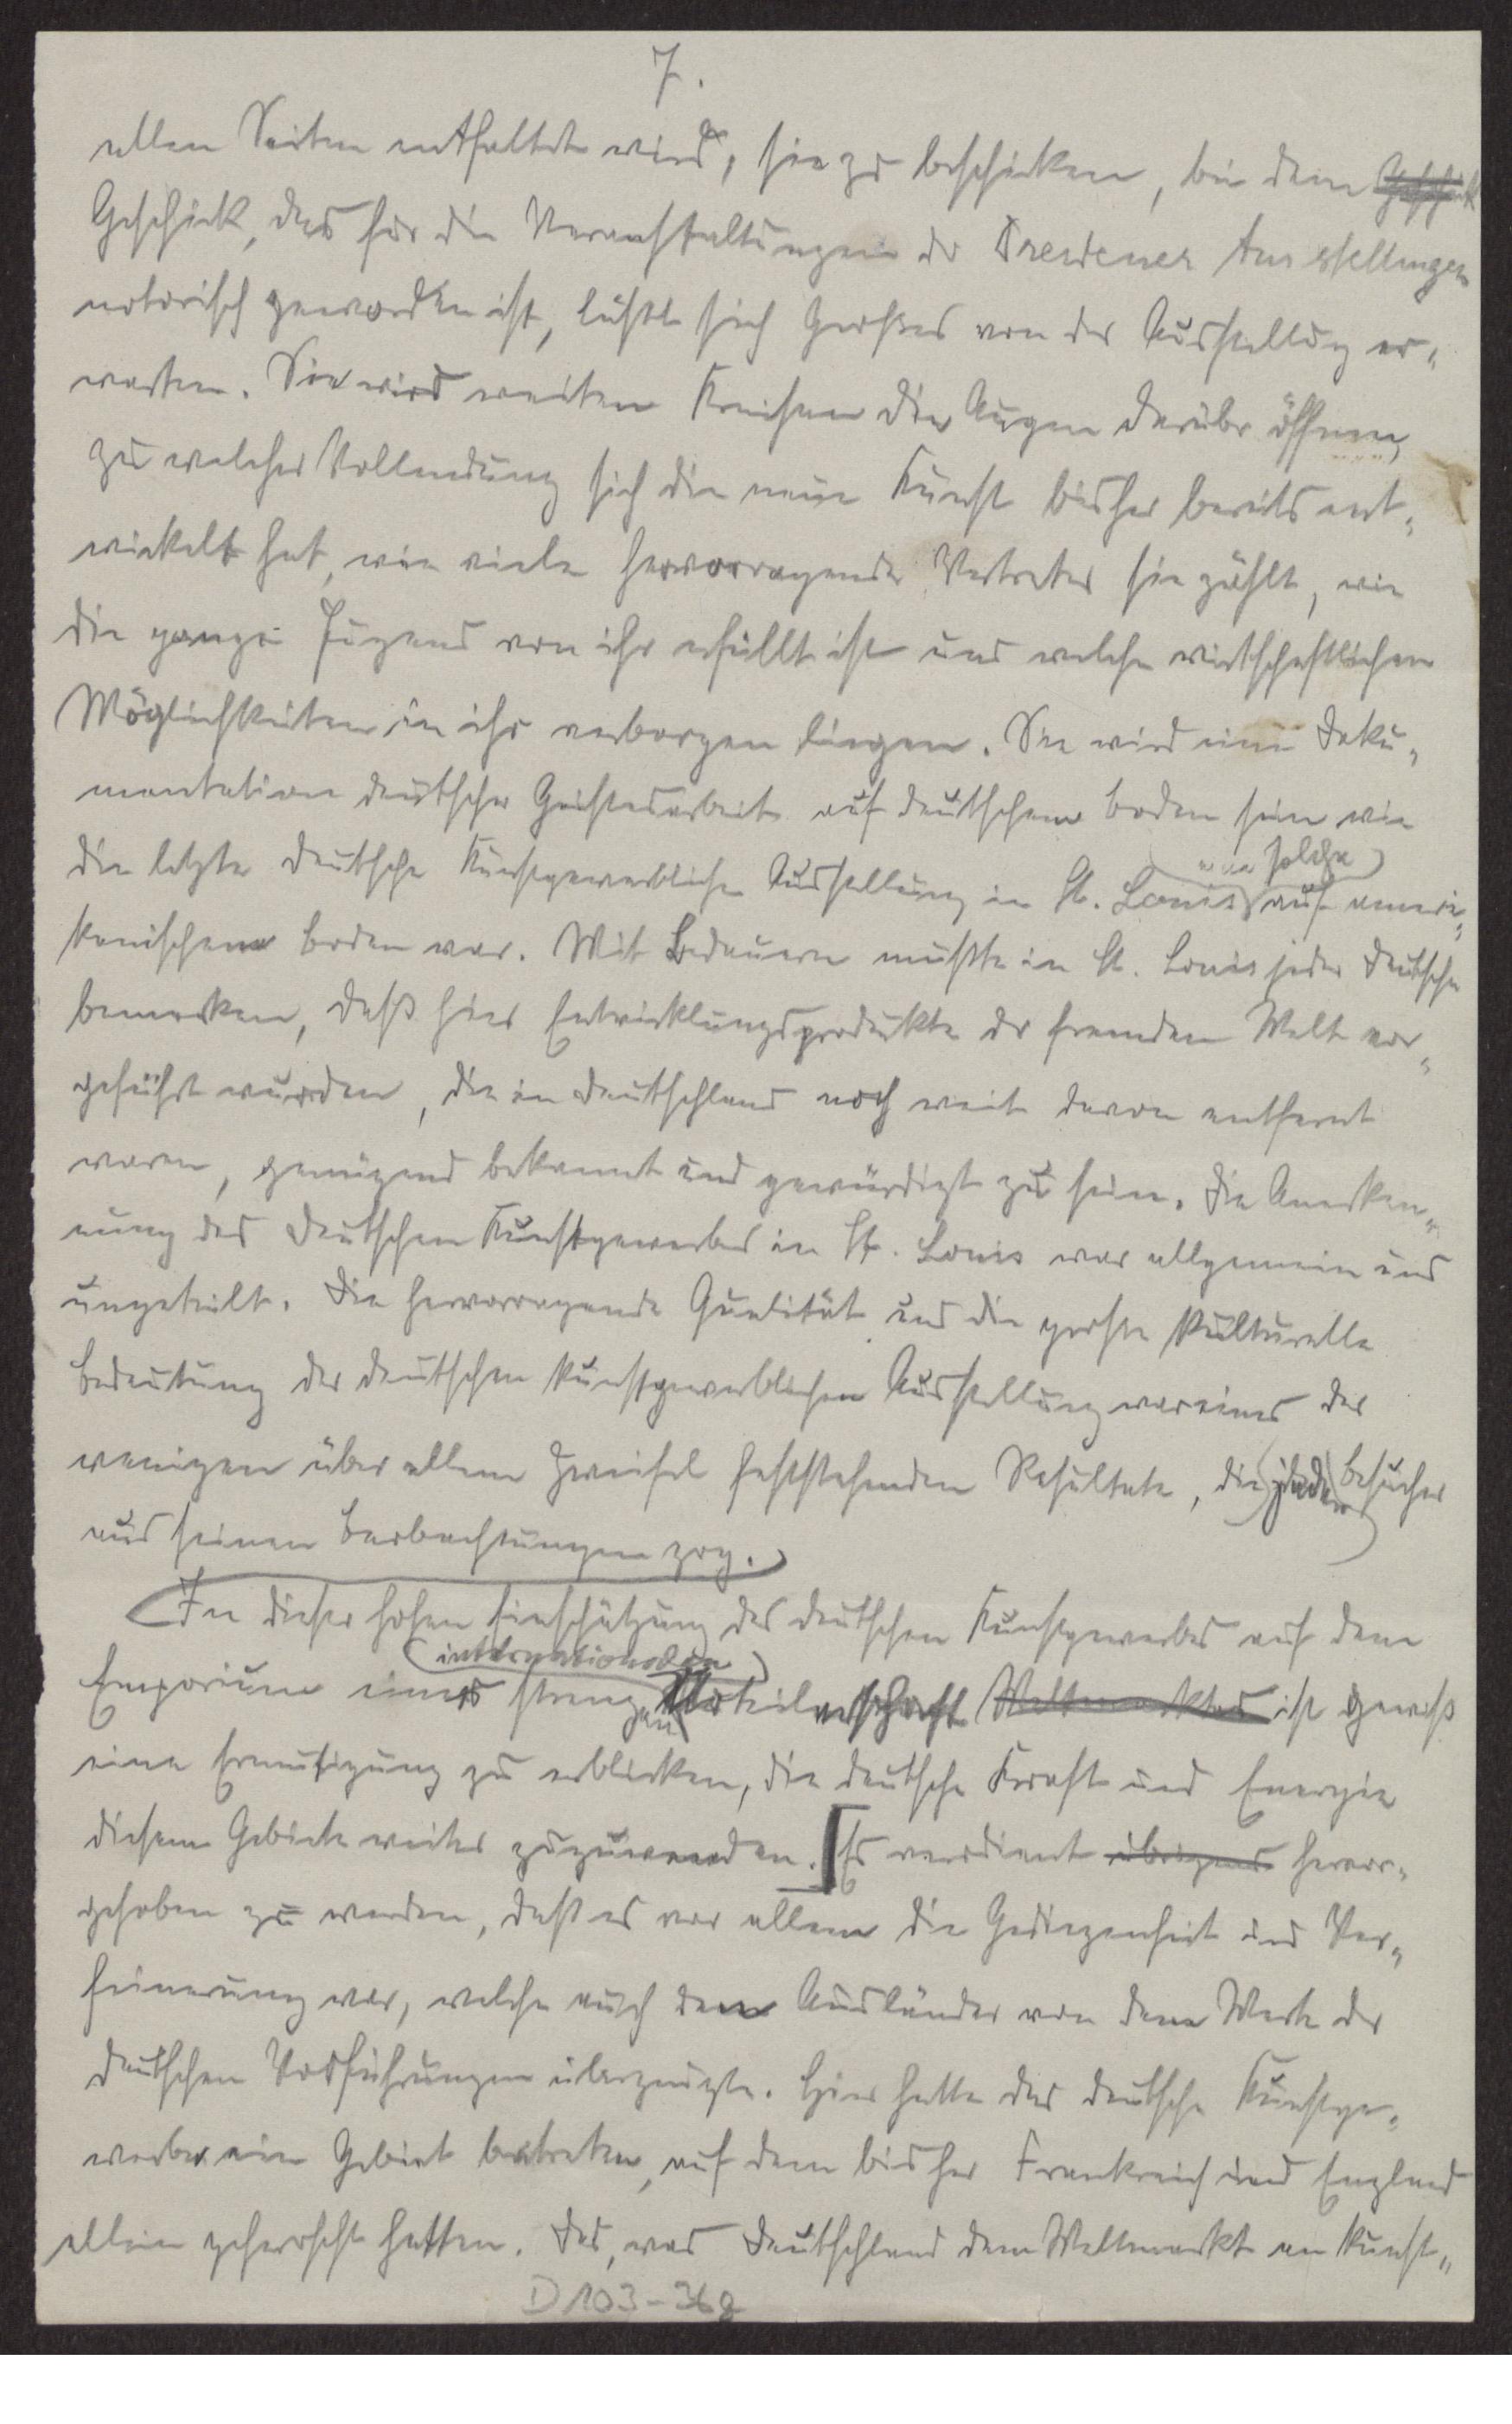 7.
allen Seiten entfaltet wird, sie zu beschicken, bei dem Geschick
Geschick, das für die Veranstaltungen der Dresdener Ausstellungen
notorisch geworden ist, läßt sich Großes von der Ausstellung er-
warten. Sie wird weiten Kreisen die Augen darüber öffnen,
zu welcher Vollendung sich die neue Kunst bisher bereits ent-
wickelt hat, wie viele hervorragende Vertreter sie zählt, wie
die ganze Jugend von ihr erfüllt ist und welche wirtschaftlichen
Möglichkeiten in ihr verborgen liegen. Sie wird eine Doku-
mentation deutscher Geistesarbeit auf deutschem Boden sein wie
eine solche
die letzte deutsche kunstgewerbliche Ausstellung in St. Louis auf ameri-
kanischem Boden war. Mit Bedauern mußte in St. Louis jeder Deutsche
bemerken, daß hier Entwicklungsprodukte der fremden Welt vor-
geführt wurden, die in Deutschland noch weit davon entfernt
waren, genügend bekannt und gewürdigt zu sein. Die Anerken-
nung des deutschen Kunstgewerbes in St. Louis war allgemein und
ungeteilt. Die hervorragende Qualität und die große kulturelle
Bedeutung der deutschen kunstgewerblichen Ausstellung war eines der
wenigen über allem Zweifel feststehenden Resultate, die jeder Besucher
aus seinen Beobachtungen zog.
In dieser hohen Einschätzung des deutschen Kunstgewerbes auf dem
internationalen
Emporium eines strengen Weltmarktes ist gewiß
eine Ermutigung zu erblicken, die deutsche Kraft und Energie
diesem Gebiete weiter zuzuwenden. Es verdient übrigens hervor-
gehoben zu werden, daß es vor allem die Gediegenheit und Ver-
feinerung war, welche auch dem Ausländer von dem Werte der
deutschen Vorführungen überzeugte. Hier hatte das deutsche Kunstge-
werbe ein Gebiet betreten, auf dem bisher Frankreich und England
allein geherrscht hatten. Das, was Deutschland dem Weltmarkt an kunst-
D 103-36g